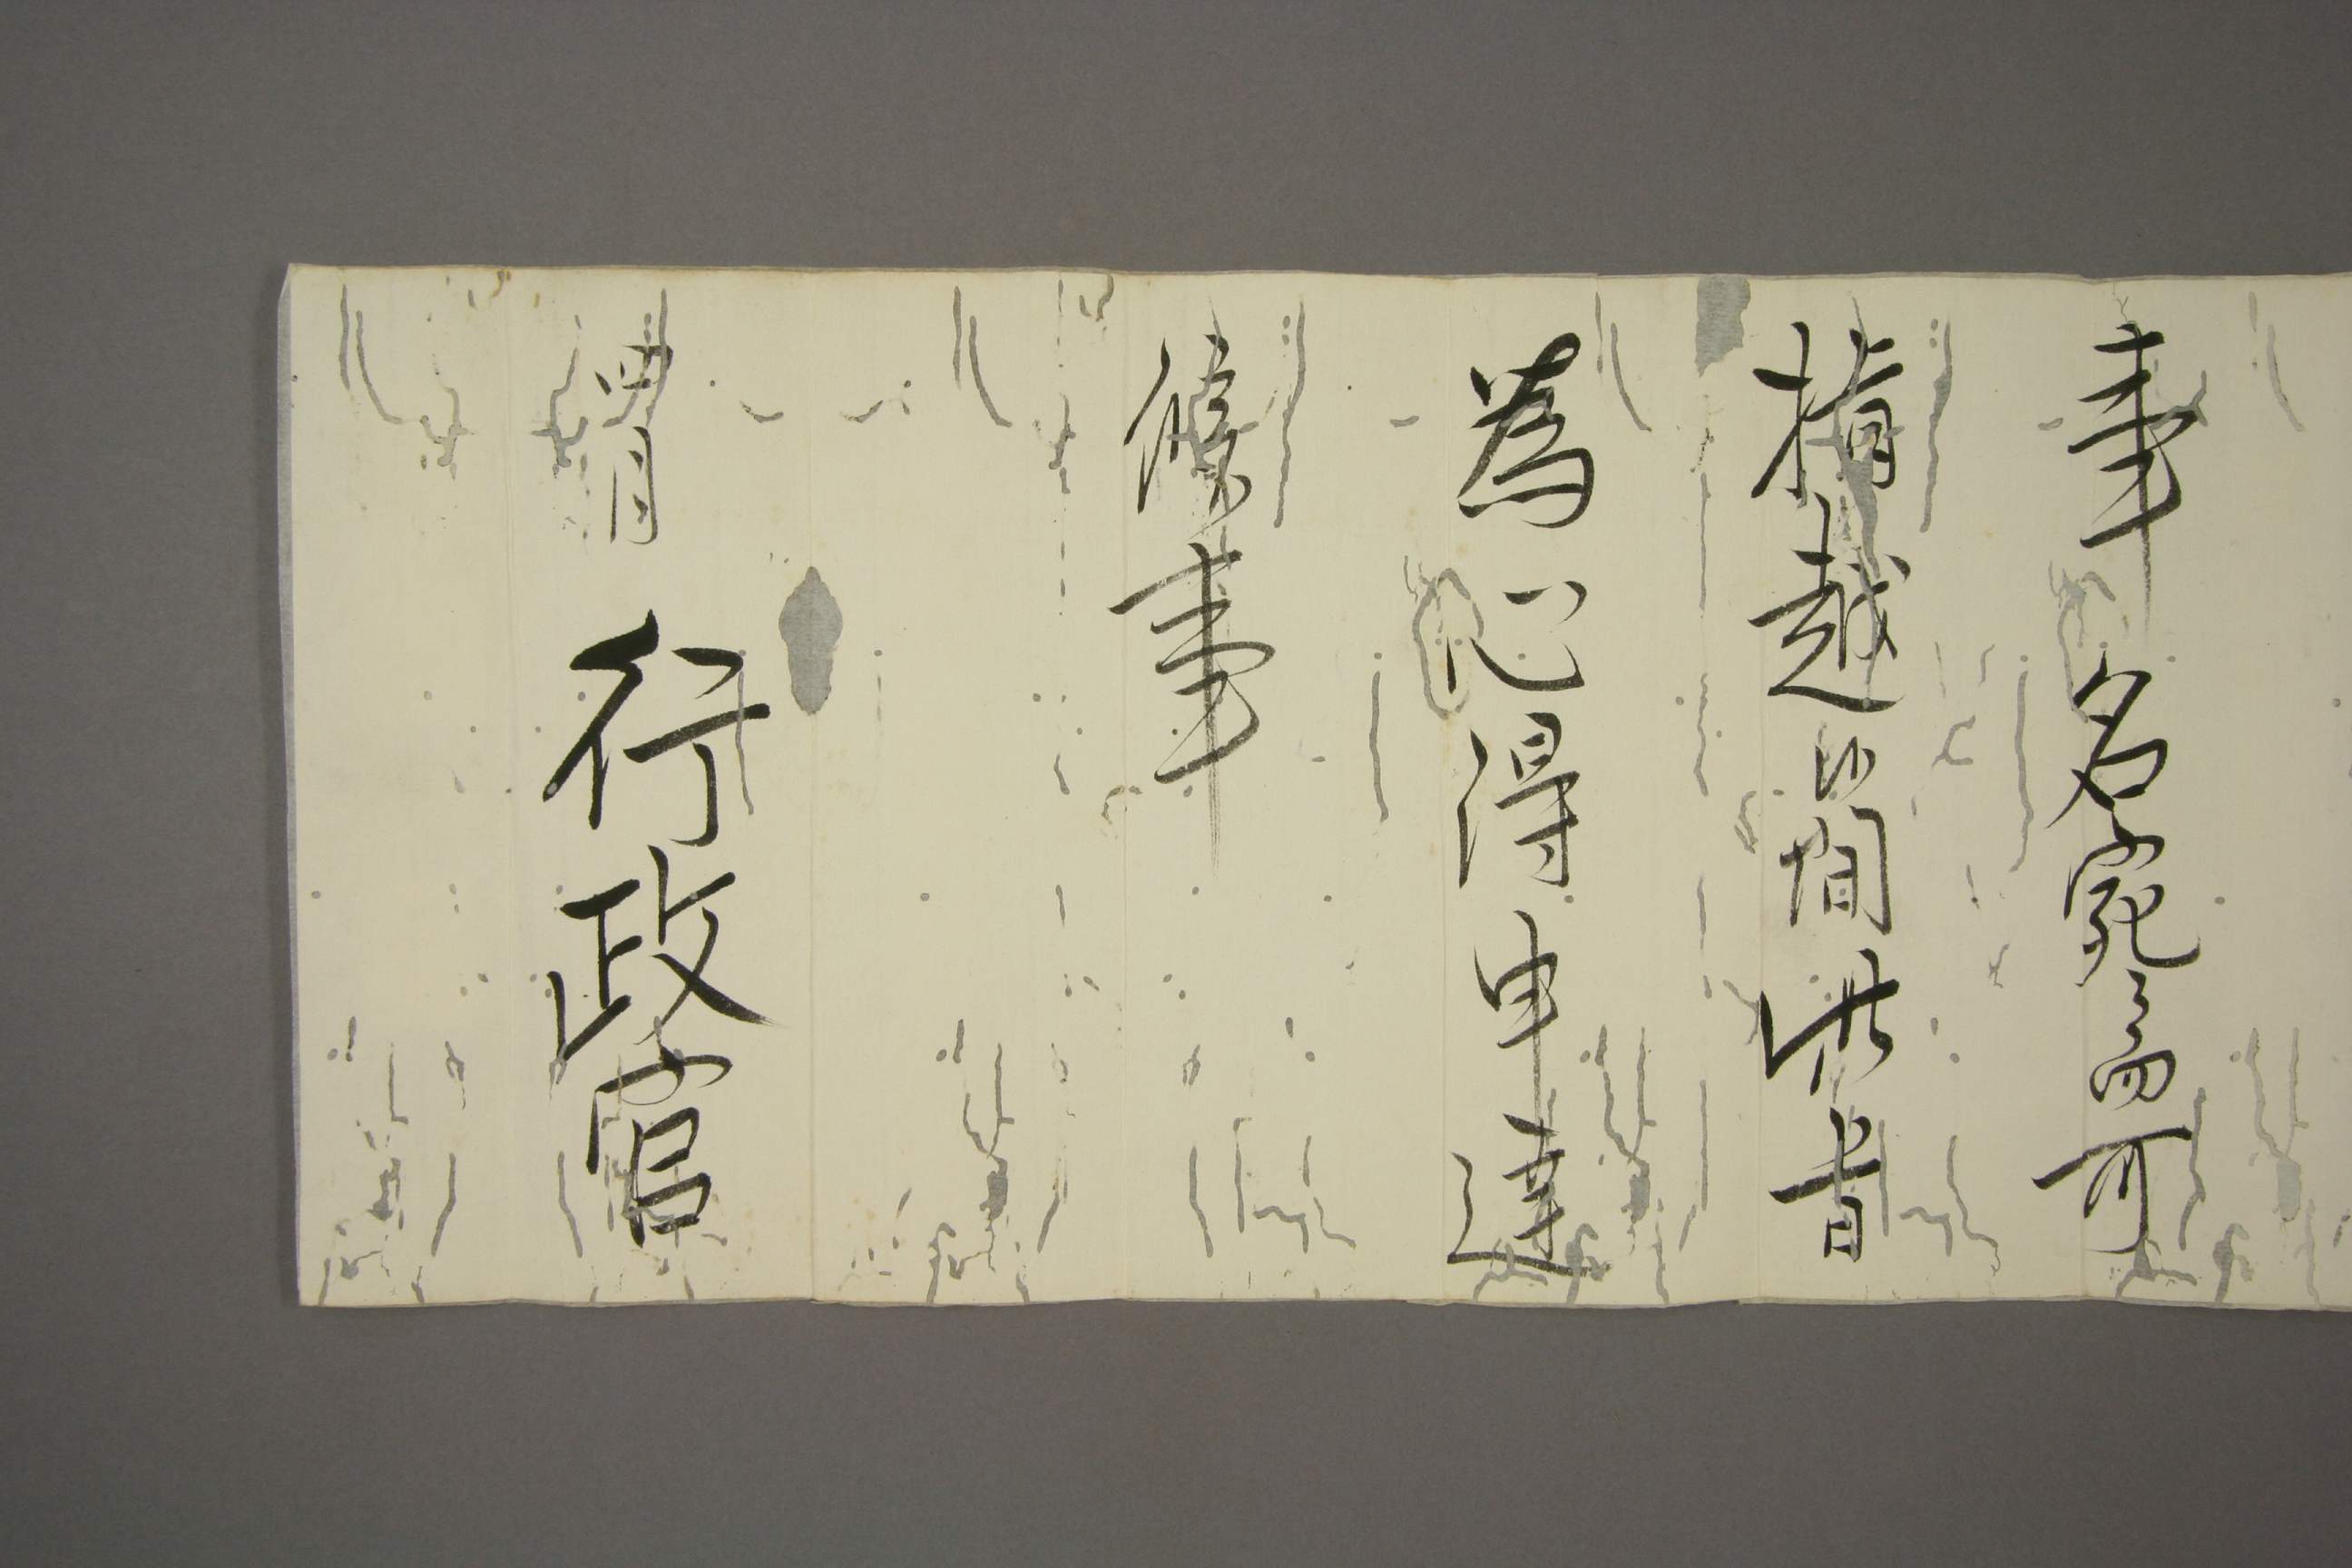 事名宛ニ而可
指越候間此旨
為心得申達
候事
四月 行政官